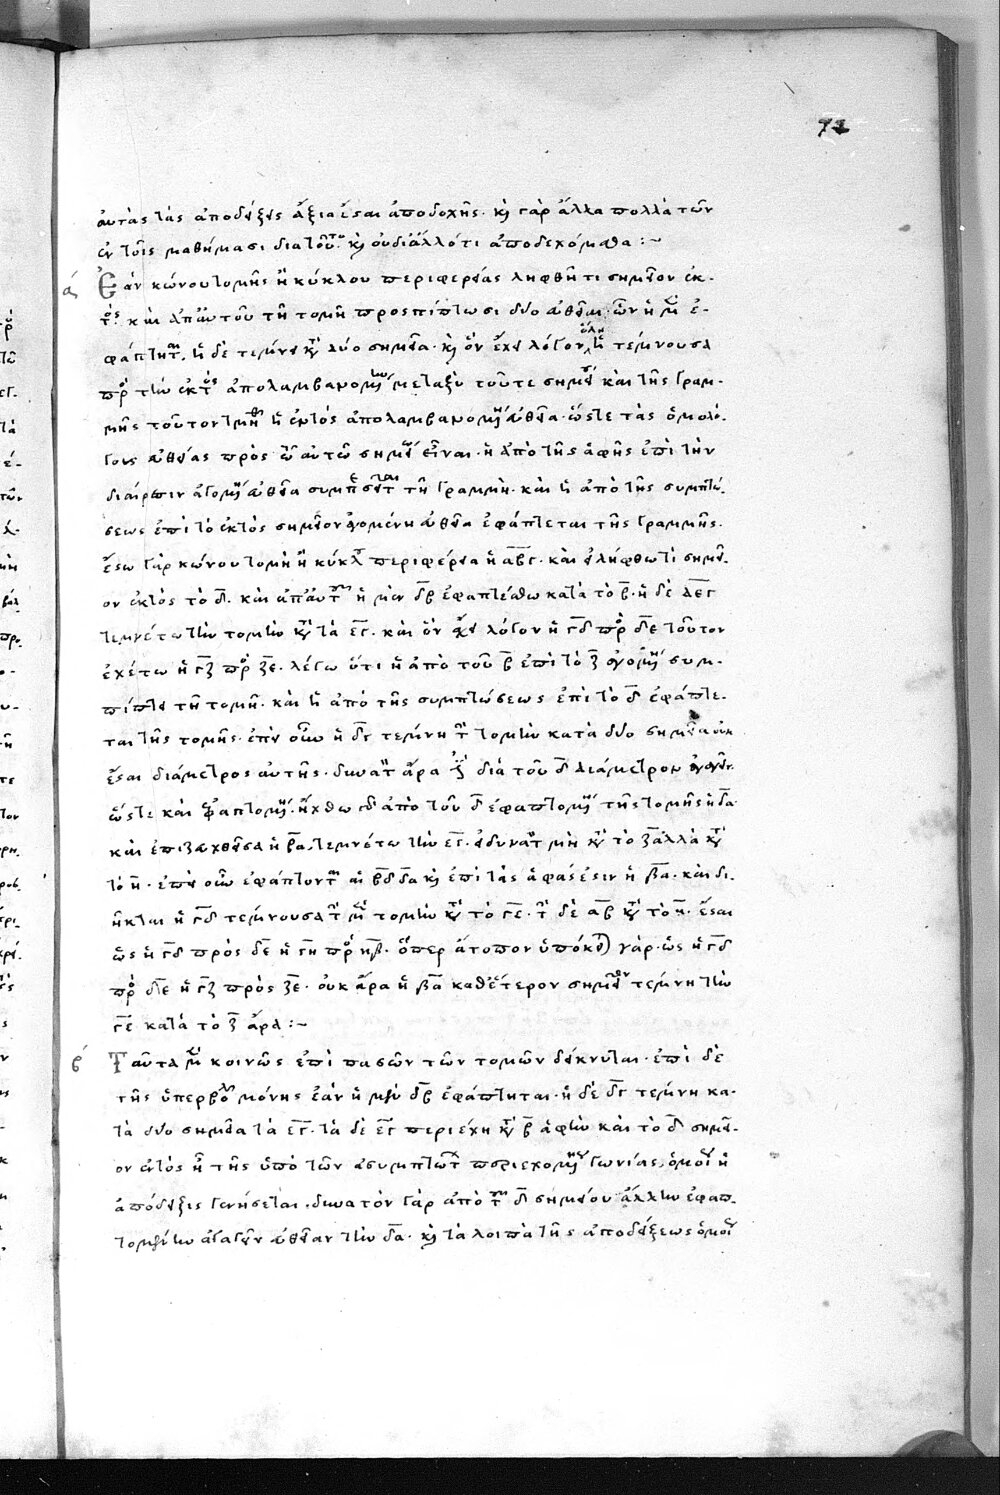 72
αυτὰς τὰς αποδείξεις ἄξια ἔσται ἀποδοχῆς· κ(αὶ) γὰρ ἄλλα πολλὰ τῶν
ἐν τοῖς μαθήμασι διὰ τοῦτο κ(αὶ) ου δι ἄλλό τι ἀποδεχόμεθα :~
ά Ἐὰν κώνου τομῆς ἢ κύκλου περιφερείας ληφθῆ τι σημεῖον ἐκ-
τός· καὶ ἀπ αὐτοῦ τῆ τομῆ προσπίπτωσι δύο εὐθεῖαι· ὧν ἡ μὲν ἐ-
φάπτηται, ἡ δὲ τέμνει κατὰ δύο σημεῖα· κ(αὶ) ὃν ἔχει λόγον ὅλη ἡ τέμνουσα
πρὸς τὴν ἐκτὸς ἀπολαμβανομένην μεταξὺ τοῦ τε σημείου καὶ τῆς γραμ-
μῆς τοῦτον τμηθῆ ἡ ἐντὸς ἀπολαμβανομένη εὐθεῖα· ὥστε τὰς ὁμολό-
γους εὐθείας πρὸς τῶ αὐτῶ σημείω εἶναι· ἡ ἀπὸ τῆς ἁφῆς ἐπὶ τὴν
διαίρεσιν ἀγομένη εὐθεῖα συμπεσεῖται τῆ γραμμῆ· καὶ ἡ ἀπὸ τῆς συμπτώ-
σεως ἐπὶ τὸ ἐκτὸς σημεῖον ἀγομένη εὐθεῖα ἐφάπτεται τῆς γραμμῆς.
ἔστω γὰρ κώνου τομὴ ἢ κύκλου περιφέρεια ἡ α̅β̅γ̅· καὶ εἰλήφθω τι σημεῖ-
ον ἐκτὸς τὸ δ̅· καὶ ἀπ αὐτοῦ ἡ μὲν δ̅β̅ ἐφαπτέσθω κατὰ τὸ β̅· ἡ δὲ δ̅ε̅γ̅
τεμνέτω τὴν τομὴν κατὰ τὰ ε̅γ̅· καὶ ὃν ἔχει λόγον ἡ γ̅δ̅ πρὸς δ̅ε̅ τοῦτον
ἐχέτω ἡ γ̅ζ̅ πρὸς ζ̅ε̅· λέγω ὅτι ἡ ἀπὸ τοῦ β̅ ἐπὶ τὸ ζ̅ ἀγομένη συμ-
πίπτει τῆ τομῆ· καὶ ἡ ἀπὸ τῆς συμπτώσεως ἐπὶ τὸ δ̅ ἐφάπτε-
ται τῆς τομῆς· ἐπεὶ οὖν ἡ δ̅γ̅ τέμνη τὴν τομὴν κατὰ δύο σημεῖα οὐκ
ἔσται διάμετρος αὐτῆς· δυνατὸν ἄρα ἐστὶ διὰ τοῦ δ̅ διάμετρον ἀγαγεῖν·
ὥστε καὶ ἐφαπτομένην· ἤχθω ἀπὸ τοῦ δ̅ ἐφαπτομένη τῆς τομῆς ἡ δ̅α̅·
καὶ ἐπιζευχθεῖσα ἡ β̅α̅, τεμνέτω τὴν ε̅γ̅· εἰ δυνατὸν μὴ κατὰ τὸ ζ̅ ἀλλὰ κατὰ
τὸ η̅· ἐπεὶ οὖν ἐφάπτονται αἱ β̅δ̅ δ̅α̅ κ(αὶ) ἐπὶ τὰς ἁφάς ἐστιν ἡ β̅α̅· καὶ δι-
ῆκται ἡ γ̅δ̅ τέμνουσα τὴν μὲν τομὴν κατὰ τὸ γ̅ε̅· τὴν δὲ α̅β̅ κατὰ τὸ η̅· ἔσται
ὡς ἡ γ̅δ̅ πρὸς δ̅ε̅ ἡ γ̅η̅ πρὸς η̅ε̅· ὅπερ ἄτοπον ὑπόκειται γάρ· ὡς ἡ γ̅δ̅
πρὸς δ̅ε̅ ἡ γ̅ζ̅ πρὸς ζ̅ε̅· οὐκ ἄρα ἡ β̅α̅ καθ ἕτερον σημεῖον τέμνη τὴν
γ̅ε̅ κατὰ τὸ ζ̅ ἄρα :~
β́ Ταῦτα μὲν κοινῶς ἐπὶ πασῶν τῶν τομῶν δείκνυται· ἐπὶ δὲ
τῆς ὑπερβολῆς μόνης ἐὰν ἡ μὲν δ̅β̅ ἐφάπτηται· ἡ δὲ δ̅γ̅ τέμνη κα-
τὰ δύο σημεῖα τὰ ε̅γ̅· τὰ δὲ ε̅γ̅ περιέχη κατὰ β̅ ἁφὴν καὶ τὸ δ̅ σημεῖ-
ον ἐντὸς ἦ τῆς ὑπὸ τῶν ἀσυμπτώτων περιεχομένης γωνίας, ὁμοίως ἡ
ἀπόδειξις γενήσεται· δυνατὸν γὰρ ἀπὸ τοῦ δ̅ σημείου ἄλλην ἐφαπ-
τομένην ἀγαγεῖν εὐθεῖαν τὴν δ̅α̅· κ(αὶ) τὰ λοιπὰ τῆς ἀποδείξεως ὁμοίως